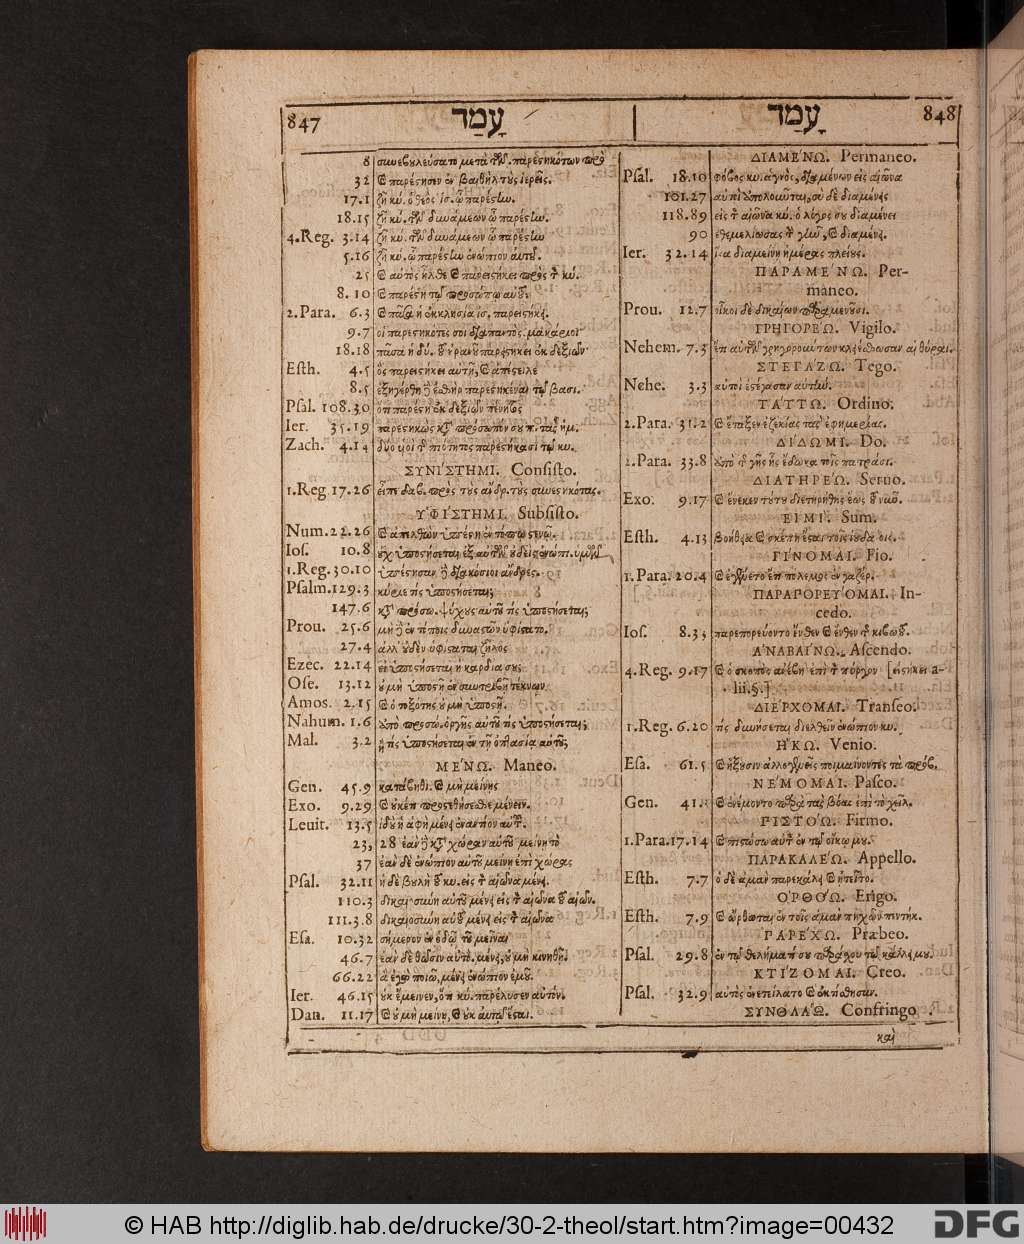 847 עָמַד עָמַד 848
8 συνεβουλεύσατο μετὰ τῶν παρεστηκότων πρὸ
32 ϗ παρέστησεν ἐν βαιθὴλ τοὺς ἱερεῖς.
17.1 ζῇ κύ. ὁ θεὸς ἰσ. ᾧ παρέστην.
18.15 ζῇ κύ. τῶν δυνάμεων ᾧ παρέστην.
4.Reg. 3.14 ζῇ κύ. τῶν δυνάμεων ᾧ παρέστην
5.16 ζῇ κύ. ᾧ παρέστην ἐνώπιον αὐτοῦ.
25 ϗ αὐτὸς ἦλθε ϗ παρειστήκει πρὸς τ κύ.
8.10 ϗ παρέστη τῷ προσώπῳ αὐτοῦ
2.Para. 6.3 ϗ πᾶσα ἡ ἐκκλησία ἰσ. παρειστήκει.
9.7 οἱ παρεστηκότες σοι διαπαντὸς. μακάριοι
18.18 πᾶσα ἡ δύ. τοῦ οὐρανοῦ παρειστήκει ἐκ δεξιῶν
Esth. 4.5 ὃς παρειστήκει αὐτῇ, ϗ ἀπέστειλε
8.5 ἐξηγέρθη ἢ ἐσθὴρ παρεστηκέναι τῷ βασι.
Psal. 108.30 ὅτι παρέστη ἐκ δεξιῶν πένητος
Ier. 35.19 παρεστηκὼς κτ πρόσωπόν σου π. τὰς ἡμ.
Zach. 4.14 δύο υἱοὶ τ πιότητος παρεστήκασι τῷ κυ.
ΣΥΝΙΣΤΗΜΙ. Consisto.
1.Reg. 17.26 εἶπε δαβ. πρὸς τοὺς ἄνδρ. τοὺς συνεστηκότας.
ΥΦΙΣΤΗΜΙ. Subsisto.
Num. 22.26 ϗ ἀπελθὼν ὑπέστη ἐν τόπῳ στενῷ.
Ios. 10.8 οὐχ ὑποστήσεται ἐξ αὐτῶν οὐδεὶς ἐνώπι. ὑμῶν
1.Reg. 30.10 ὑπέστησαν ἢ διακόσιοι ἄνδρες.
Psalm. 129.3 κύριε τίς ὑποστήσεται;
147.6 κτ πρόσω. ψύχους αὐτοῦ τίς ὑποστήσεται;
Prou. 25.6 μηδὲ ἐν τόποις δυναστῶν ὑφίστασο.
27.4 ἀλλ' οὐδὲν ὑφίσταται ζῆλος
Ezec. 22.14 εἰ ὑποστήσεται ἡ καρδία σου;
Ose. 13.12 οὐ μὴ ὑποστῇ ἐν συντριβῇ τέκνων
Amos. 2.15 ϗ ὁ τοξότης οὐ μὴ ὑποστῇ.
Nahum. 1.6 ἀπὸ προσώ. ὀργῆς αὐτοῦ τίς ὑποστήσεται;
Mal. 3.2 ἢ τίς ὑποστήσεται ἐν τῇ ὀπτασίᾳ αὐτοῦ;
ΜΕΝΩ. Maneo.
Gen. 45.9 κατάβηθι ϗ μὴ μείνῃς
Exo. 9.29 ϗ οὐκέτι προστεθήσεσθε μένειν.
Leuit. 13.5 ἰδοὺ ἡ ἁφὴ μένει ἐναντίον αὐτοῦ.
23, 28 ἐὰν ἢ κτ χώραν αὐτοῦ μείνῃ τὸ
37 ἐὰν δὲ ἐνώπιον αὐτοῦ μείνῃ ἐπὶ χώρας
Psal. 32.11 ἡ δὲ βουλὴ τοῦ κυ. εἰς τ αἰῶνα μένει.
110.3 δικαιοσύνη αὐτοῦ μένει εἰς τ αἰῶνα τοῦ αἰῶν.
111.3.8 δικαιοσύνη αὐτοῦ μένει εἰς τ αἰῶνα
Esa. 10.32 σήμερον ἐν ὁδῷ τοῦ μεῖναι
46.7 ἐὰν δὲ θῶσιν αὐτὸ, μένει, οὐ μὴ κινηθῇ.
66.22 ἃ ἐγὼ ποιῶ, μένει ἐνώπιον ἐμοῦ.
Ier. 46.15 οὐκ ἔμεινεν, ὅτι κύ. παρέλυσεν αὐτόν.
Dan. 11.17 ϗ οὐ μὴ μείνῃ, ϗ οὐκ αὐτῷ ἔσται.
ΔΙΑΜΕΝΩ. Permaneo.
Psal. 18.10 φόβος κυ. ἁγνὸς, διαμένων εἰς αἰῶνα
101.27 αὐτοὶ ἀπολοῦνται, σὺ δὲ διαμένεις
118.89 εἰς τ αἰῶνα κύ. ὁ λόγος σου διαμένει
90 ἐθεμελίωσας τ γῆν, ϗ διαμένει.
Ier. 32.14 ἵνα διαμείνῃ ἡμέρας πλείους.
ΠΑΡΑΜΕΝΩ. Per-
maneo.
Prou. 12.7 οἶκοι δὲ δικαίων παραμένουσι.
ΓΡΗΓΟΡΕΩ. Vigilo.
Nehem. 7.3 ἔτι αὐτῶν γρηγορούντων κλεισθήτωσαν αἱ θύραι.
ΣΤΕΓΑΖΩ. Tego.
Nehe. 3.3 αὐτοὶ ἐστέγασαν αὐτήν.
ΤΑΤΤΩ. Ordino.
2.Para. 31.2 ϗ ἔταξεν ἐζεκίας τὰς ἐφημερίας.
ΔΙΔΩΜΙ. Do.
2.Para. 33.8 ἀπὸ τ γῆς ἧς ἔδωκα τοῖς πατράσι.
ΔΙΑΤΗΡΕΩ. Seruo.
Exo. 9.17 ϗ ἕνεκεν τούτου διετηρήθης ἕως τοῦ νῦν.
ΕΙΜΙ. Sum.
Esth. 4.13 βοήθεια ϗ σκέπη ἔσται τοῖς ἰουδαίοις.
ΓΙΝΟΜΑΙ. Fio.
1.Para. 20.4 ϗ ἐγένετο ἔτι πόλεμος ἐν γαζέρ.
ΠΑΡΑΠΟΡΕΥΟΜΑΙ. In-
cedo.
Ios. 8.33 παρεπορεύοντο ἔνθεν ϗ ἔνθεν τ κιβωτοῦ.
ΑΝΑΒΑΙΝΩ. Ascendo.
4.Reg. 9.17 ϗ ὁ σκοπὸς ἀνέβη ἐπὶ τ πύργον [εἱστήκει a-
lii. §.]
ΔΙΕΡΧΟΜΑΙ. Transeo.
1.Reg. 6.20 τίς δυνήσεται διελθεῖν ἐνώπιον κυ.
ΗΚΩ. Venio.
Esa. 61.5 ϗ ἥξουσιν ἀλλογενεῖς ποιμαίνοντες τὰ πρόβ.
ΝΕΜΟΜΑΙ. Pasco.
Gen. 41.3 ϗ ἐνέμοντο παρὰ τὰς βόας ἐπὶ τὸ χεῖλ.
ΠΙΣΤΟΩ. Firmo.
1.Para. 17.14 ϗ πιστώσω αὐτὸν ἐν τῷ οἴκῳ μου.
ΠΑΡΑΚΑΛΕΩ. Appello.
Esth. 7.7 ὁ δὲ ἀμὰν παρεκάλει ϗ ᾐτεῖτο.
ΟΡΘΟΩ. Erigo.
Esth. 7.9 ϗ ὤρθωται ἐν τοῖς ἀμὰν πηχῶν πεντήκ.
ΠΑΡΕΧΩ. Præbeo.
Psal. 29.8 ἐν τῷ θελήματί σου παράσχου τῷ κάλλει μου.
ΚΤΙΖΟΜΑΙ. Creo.
Psal. 32.9 αὐτὸς ἐνετείλατο ϗ ἐκτίσθησαν.
ΣΥΝΘΛΑΩ. Confringo.
καὶ
© HAB http://diglib.hab.de/drucke/30-2-theol/start.htm?image=00432
DFG